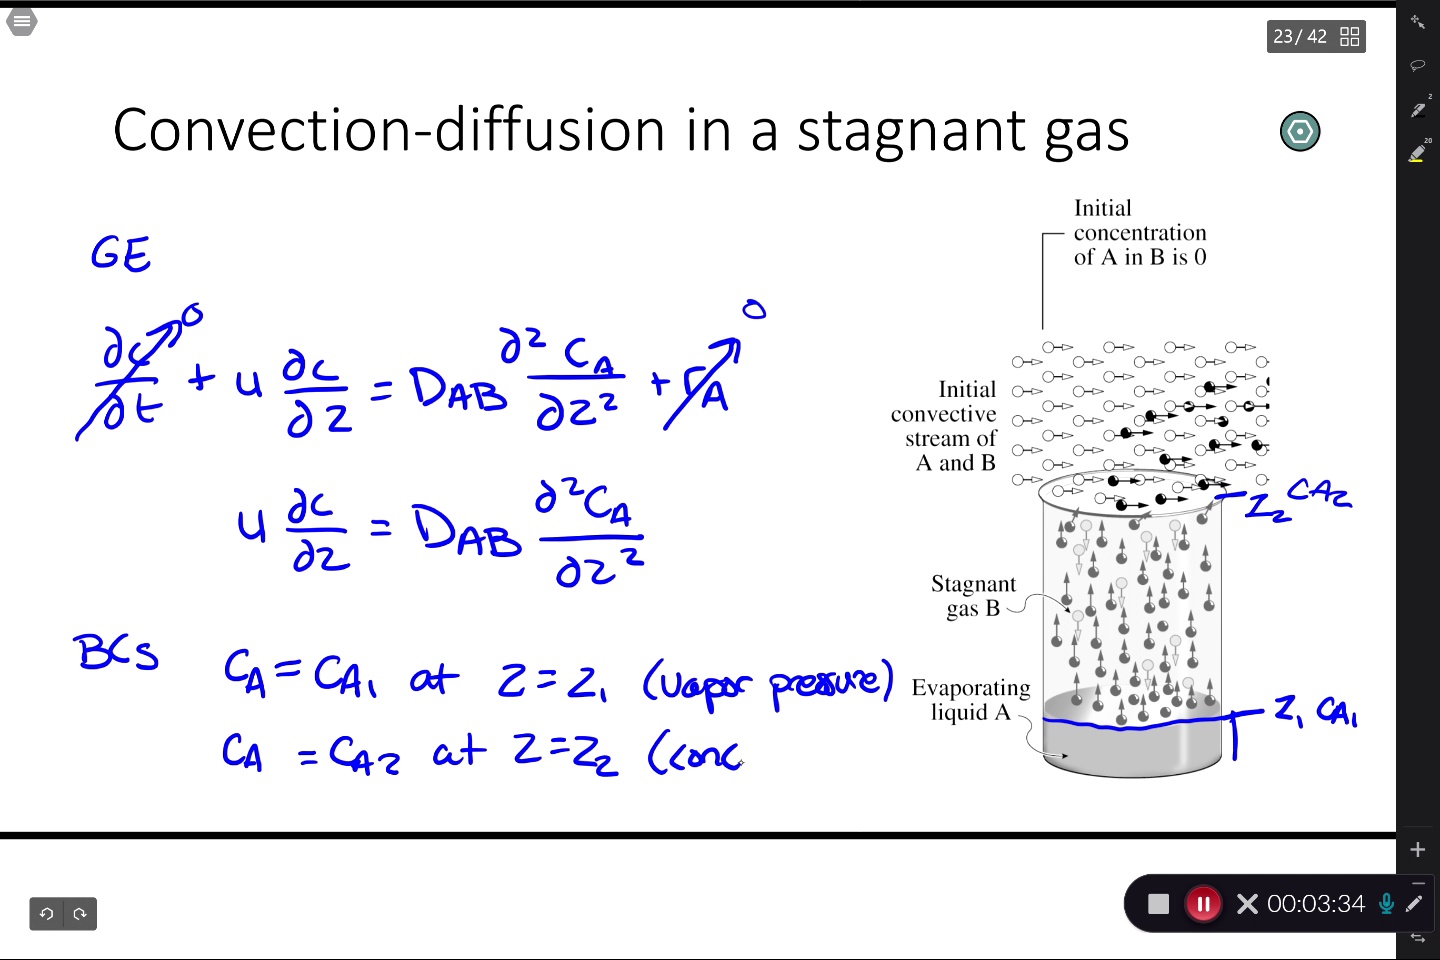 23 / 42
Convection-diffusion in a stagnant gas
GE
∂c/∂t → 0 + u ∂c/∂z = D_AB ∂² C_A/∂z² + r_A → 0
u ∂c/∂z = D_AB ∂²C_A/∂z²
BCs
C_A = C_A1 at z = z_1 (vapor pressure)
C_A = C_A2 at z = z_2 (conc
Initial
concentration
of A in B is 0
Initial
convective
stream of
A and B
z_2 C_A2
Stagnant
gas B
Evaporating
liquid A
z_1 C_A1
2
20
00:03:34